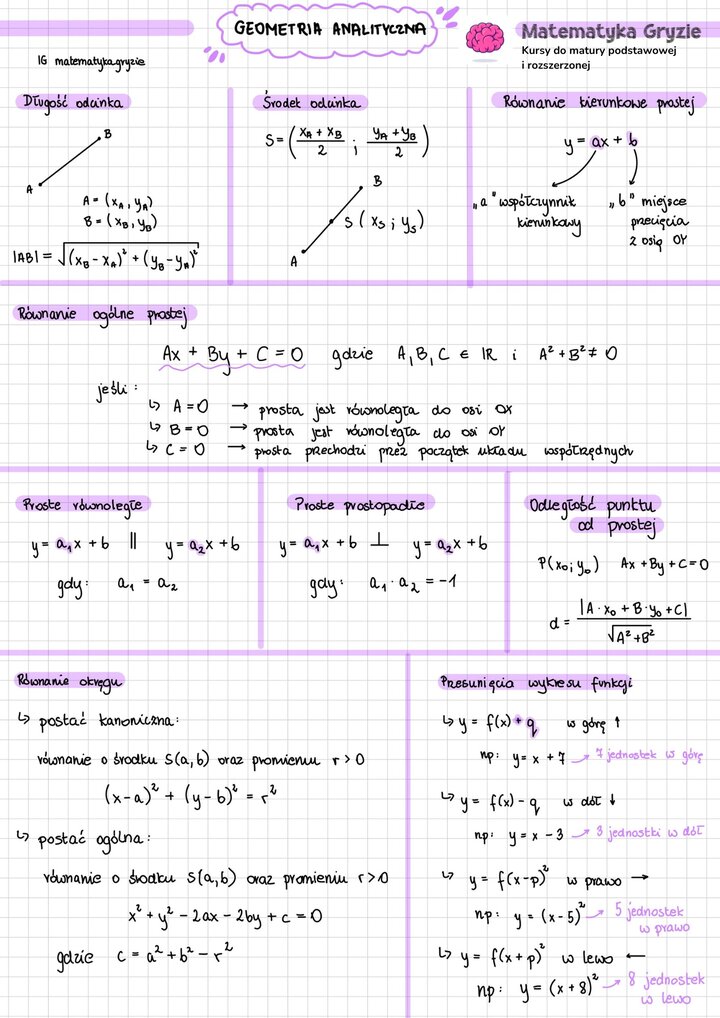 GEOMETRIA ANALITYCZNA
Matematyka Gryzie
Kursy do matury podstawowej
i rozszerzonej
IG matematyka.gryzie
Długość odcinka
B
A
A = (x_A, y_A)
B = (x_B, y_B)
|AB| = √((x_B - x_A)² + (y_B - y_A)²)
Środek odcinka
S = ((x_A + x_B)/2 ; (y_A + y_B)/2)
B
S (x_s ; y_s)
A
Równanie kierunkowe prostej
y = ax + b
„a" współczynnik
kierunkowy
„b" miejsce
przecięcia
z osią OY
Równanie ogólne prostej
Ax + By + C = 0 gdzie A, B, C ∈ ℝ i A² + B² ≠ 0
jeśli:
↳ A = 0 → prosta jest równoległa do osi OX
↳ B = 0 → prosta jest równoległa do osi OY
↳ C = 0 → prosta przechodzi przez początek układu współrzędnych
Proste równoległe
y = a₁x + b || y = a₂x + b
gdy: a₁ = a₂
Proste prostopadłe
y = a₁x + b ⊥ y = a₂x + b
gdy: a₁ · a₂ = -1
Odległość punktu
od prostej
P(x₀; y₀) Ax + By + C = 0
d = |A · x₀ + B · y₀ + C| / √(A² + B²)
Równanie okręgu
↳ postać kanoniczna:
równanie o środku S(a, b) oraz promieniu r > 0
(x-a)² + (y-b)² = r²
↳ postać ogólna:
równanie o środku S(a, b) oraz promieniu r > 0
x² + y² - 2ax - 2by + c = 0
gdzie c = a² + b² - r²
Przesunięcia wykresu funkcji
↳ y = f(x) + q w górę ↑
np: y = x + 7 → 7 jednostek w górę
↳ y = f(x) - q w dół ↓
np: y = x - 3 → 3 jednostki w dół
↳ y = f(x-p)² w prawo →
np: y = (x-5)² → 5 jednostek
w prawo
↳ y = f(x+p)² w lewo ←
np: y = (x+8)² → 8 jednostek
w lewo